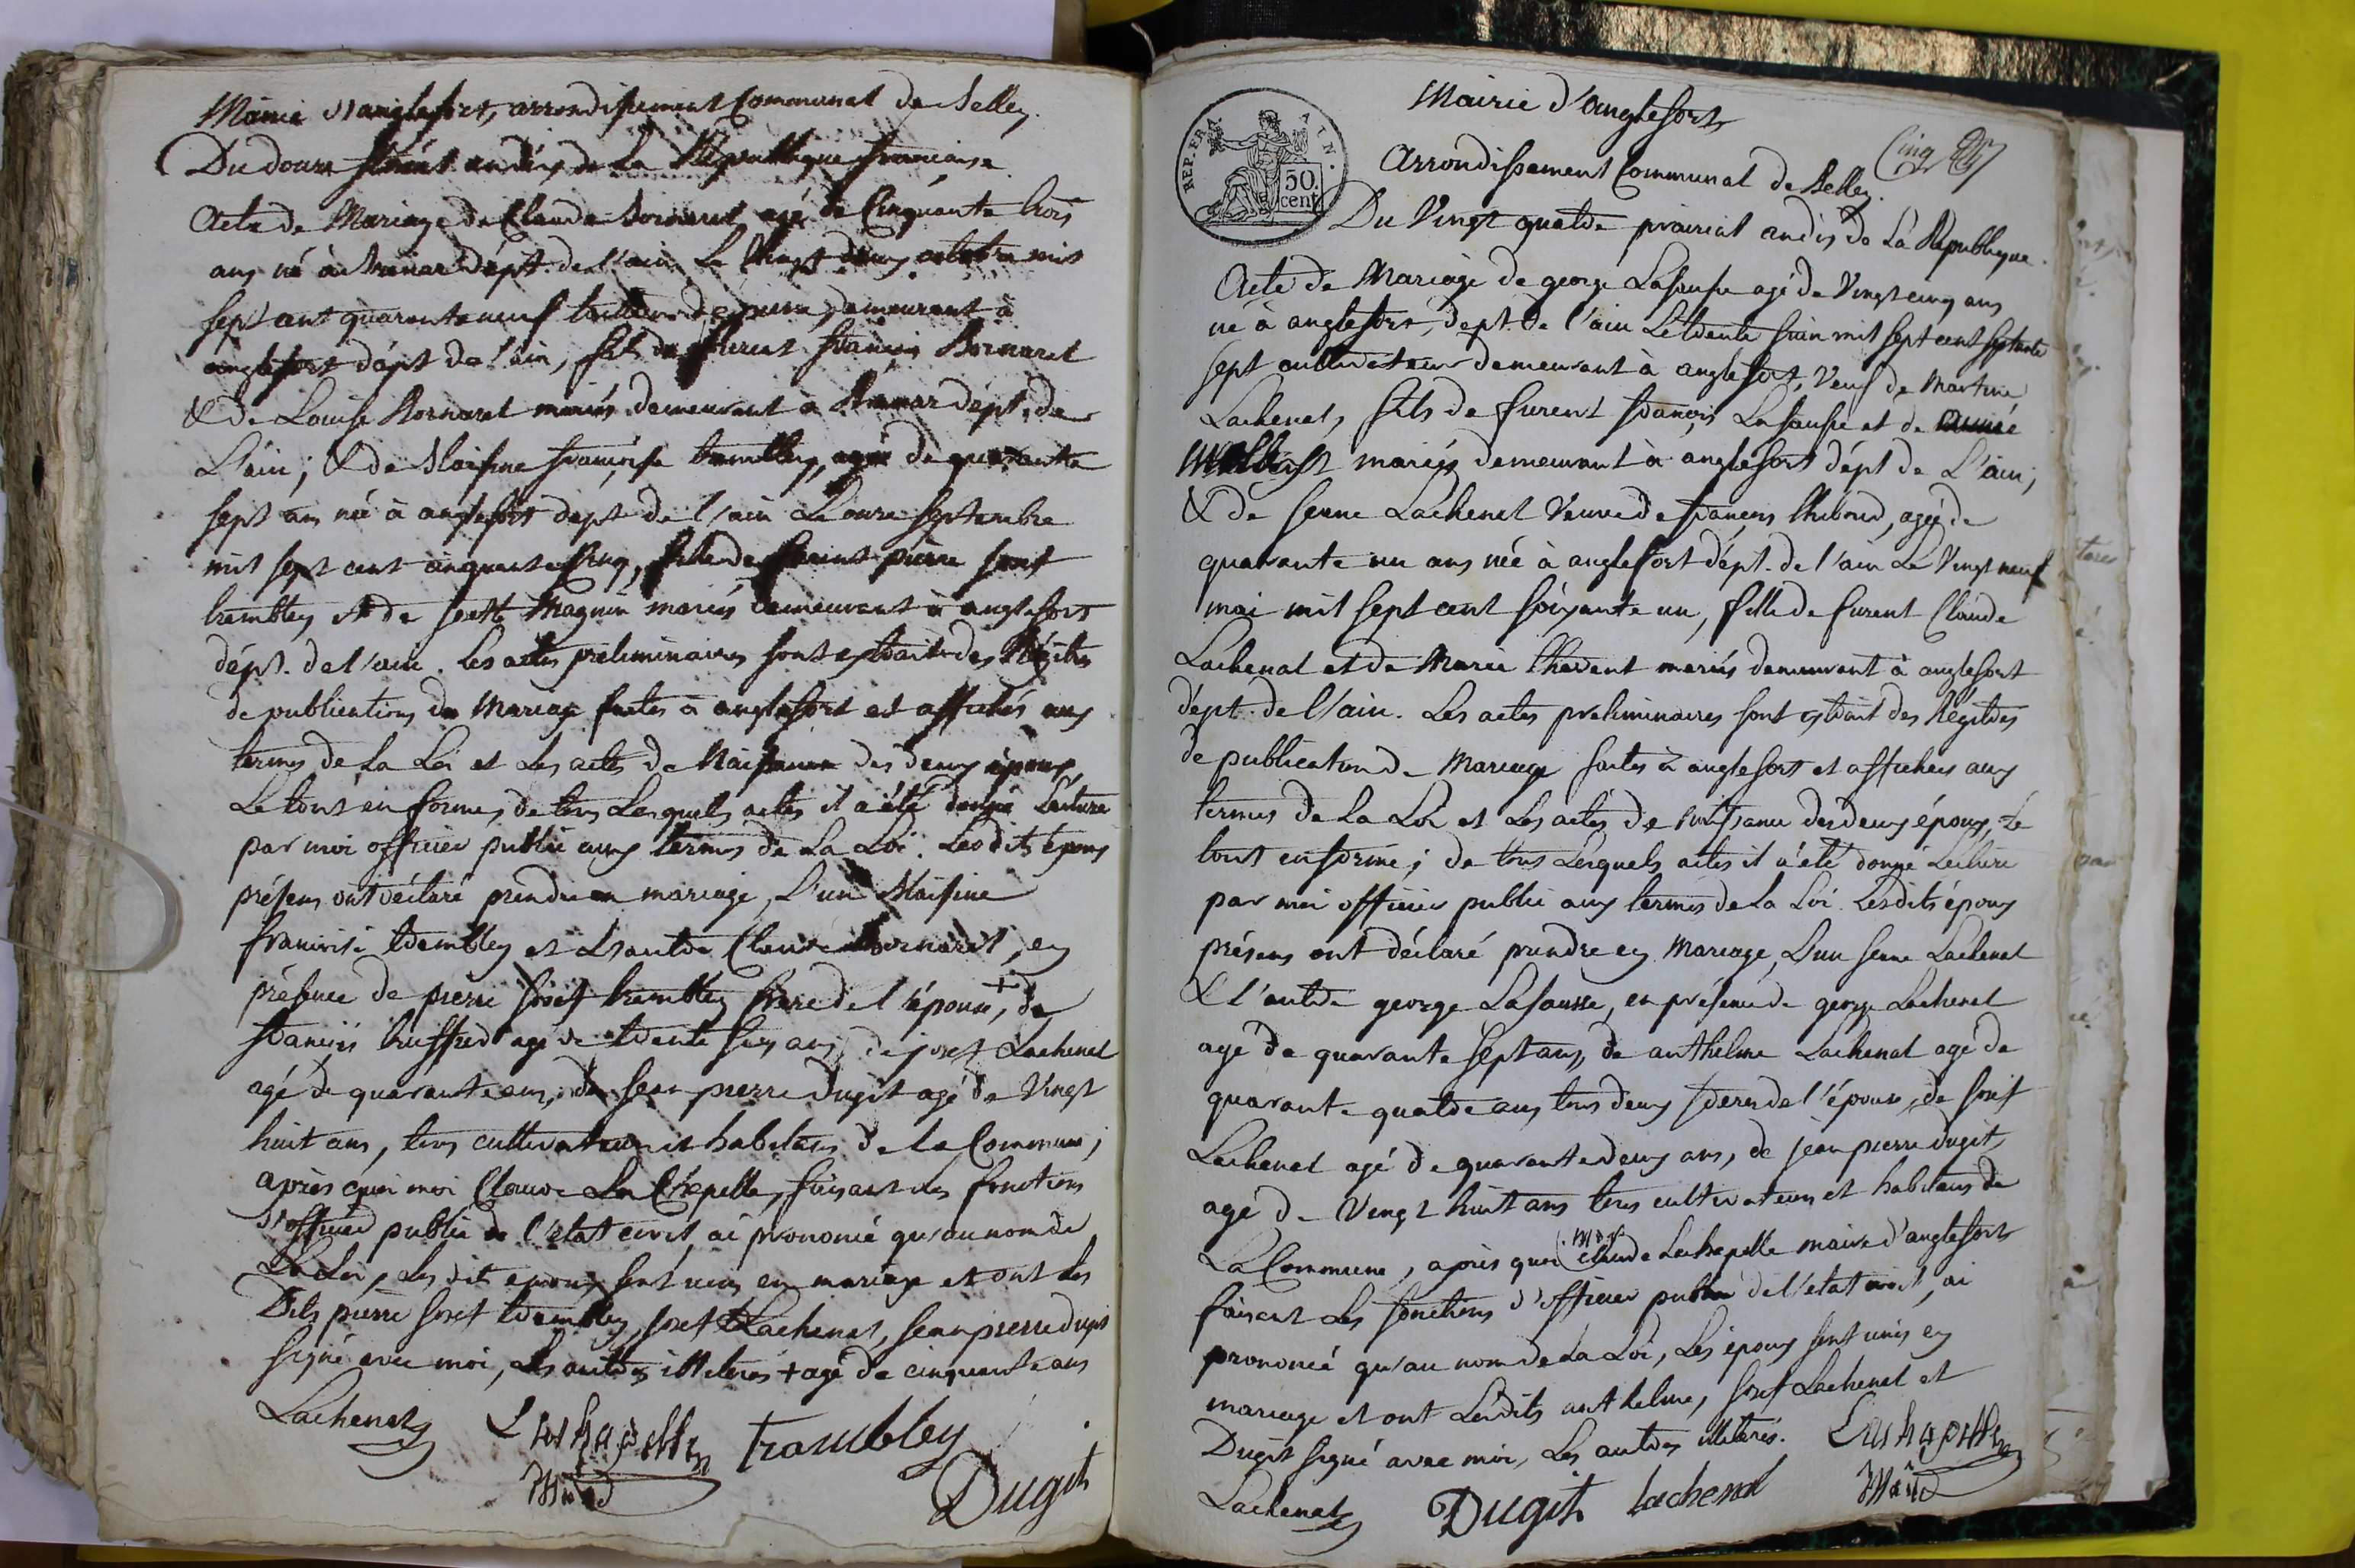 Mairie d'anglefort, arrondissement Communal de Belley.
Du douze floréal an dix de La République française
Acte de Mariage de Claude Bornaret agé de Cinquante trois
ans né à dépt. de l'ain Le Vingt deux octobre mil
sept cent quarante neuf demeurant à
anglefort dépt de l'ain, fils de furent françois Bornaret
& de Louise Bornaret mariés demeurant à dépt. de
L'ain; & de françoise trembley, agée de quarante
sept ans née à anglefort dept de l'ain Le onze septembre
mil sept cent cinquante cinq, fille de furent pierre josef
trembley et de Magnin mariés demeurant à anglefort
dépt. de l'ain. Les actes préliminaires sont extraits des Régitres
de publications de Mariage faites à anglefort et affichés aux
termes de La Loi et Les actes de Naissance des deux époux,
Le tout en formes, de tous Lesquels actes il a été donné Lecture
par moi officier public aux termes de La Loi. Lesdits époux
présens ont déclaré prendre en mariage, L'un
françoise trembley et L'autre Claude Bornaret, en
présence de pierre josef trembley frere de l'épouse +, de
françois agé de trente six ans, de josef Lachenal
agé de quarante ans, de jean pierre dugit agé de Vingt
huit ans, tous cultivateurs et habitans de la Commune;
après quoi moi Claude La Chapelle, faisant les fonctions
d'officier public de l'état civil, ai prononcé qu'au nom de
La Loi, Les dits époux sont unis en mariage et ont Les
Dits pierre josef trembley, josef Lachenal, jean pierre dugit
signé avec moi, Les autres illiterés + agé de cinquante ans
Lachenal Lachapelle Trambley
Maire Dugit
Mairie d'anglefort
REP. FRA. AIN.
50. cent.
Cinq
Arrondissement Communal de Belley.
Du Vingt quatre prairial an dix de La République.
Acte de Mariage de george Lasausse agé de Vingt cinq ans
né à anglefort, dept. de l'ain Le trente juin mil sept cent septante
sept cultivateur demeurant à anglefort, Veuf de Martine
Lachenal, fils de furent françois Lasausse et de
mariés demeurant à anglefort dépt de L'ain;
& de jeanne Lachenal Veuve de françois thiboud, agée de
quarante un ans née à anglefort dépt. de l'ain Le Vingt neuf
mai mil sept cent soixante un, fille de furent Claude
Lachenal et de Marie Chavent mariés demeurant à anglefort
dépt. de l'ain. Les actes preliminaires sont extrait des Régitres
de publication de Mariage faites à anglefort et affichées aux
termes de La Loi et Les actes de naissance des deux époux, Le
tout en forme; de tous Lesquels actes il a été donné Lecture
par moi officier public aux termes de La Loi. Lesdits époux
présens ont déclaré prendre en Mariage, L'un jeanne Lachenal
& l'autre george Lasausse, en présence de george Lachenal
agé de quarante sept ans, de anthelme Lachenal agé de
quarante quatre ans, tous deux freres de l'épouse, de josef
Lachenal agé de quarante deux ans, de jean pierre dugit
agé de Vingt huit ans tous cultivateurs et habitans de
La Commune, après quoi moi Claude Lachapelle maire d'anglefort
faisant Les fonctions d'officier public de l'état civil, ai
prononcé qu'au nom de La Loi, Les époux sont unis en
mariage et ont Lesdits anthelme, josef Lachenal et
Dugit signé avec moi, Les autres illiterés. Lachapelle
Lachenal Dugit Lachenal Maire